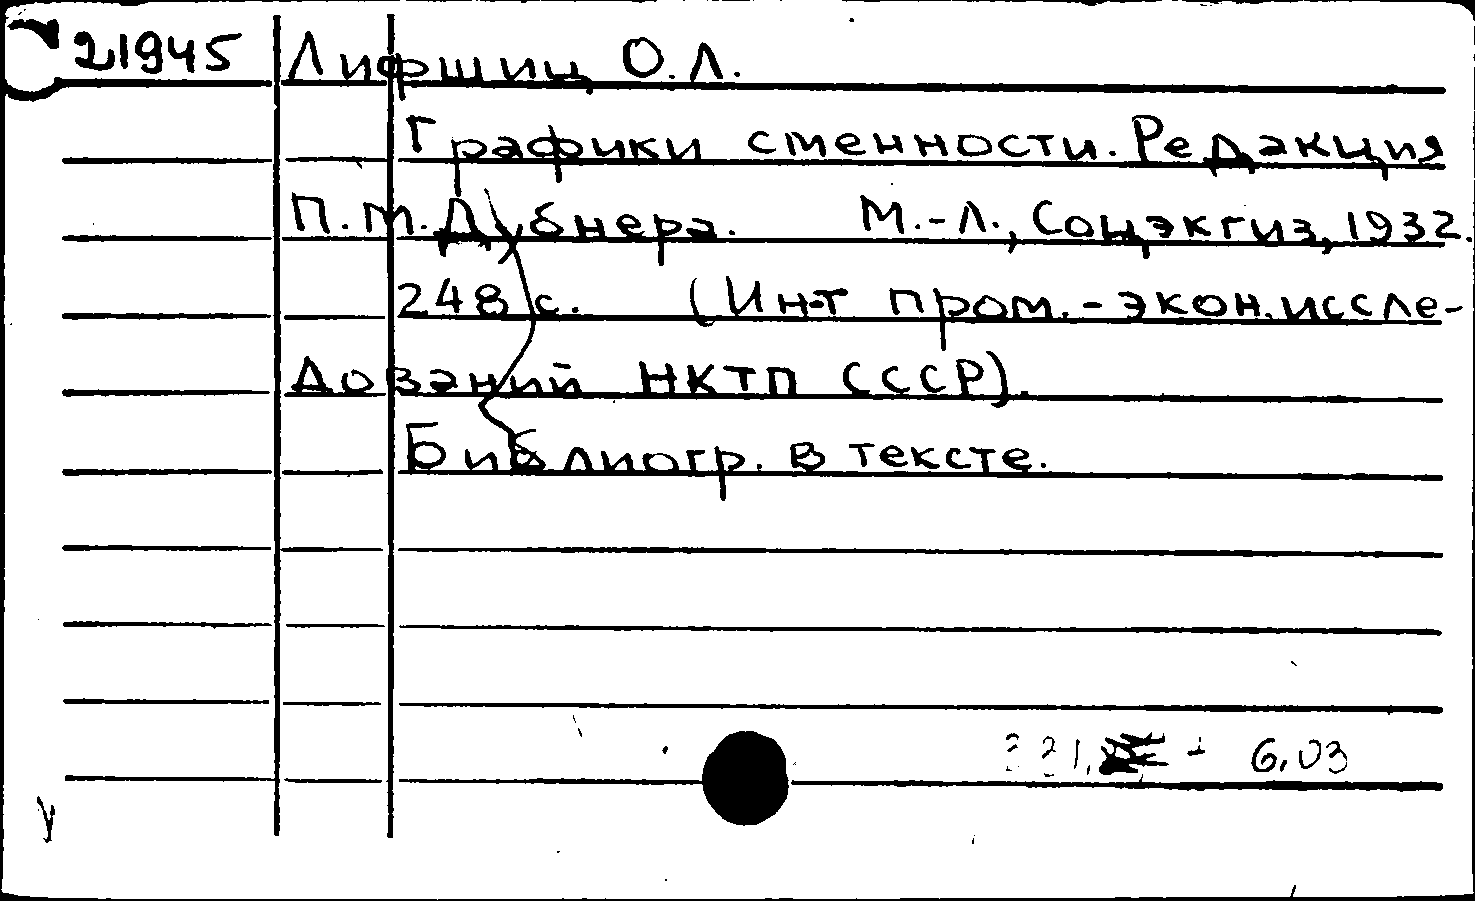 21945 Лифшиц О.Л.
Графики сменности. Редакция
П.М. Дубнера. М.-Л., Соцэкгиз, 1932.
248 с. (Ин-т пром.-экон. иссле-
дований НКТП СССР).
Библиогр. в тексте.
6.03